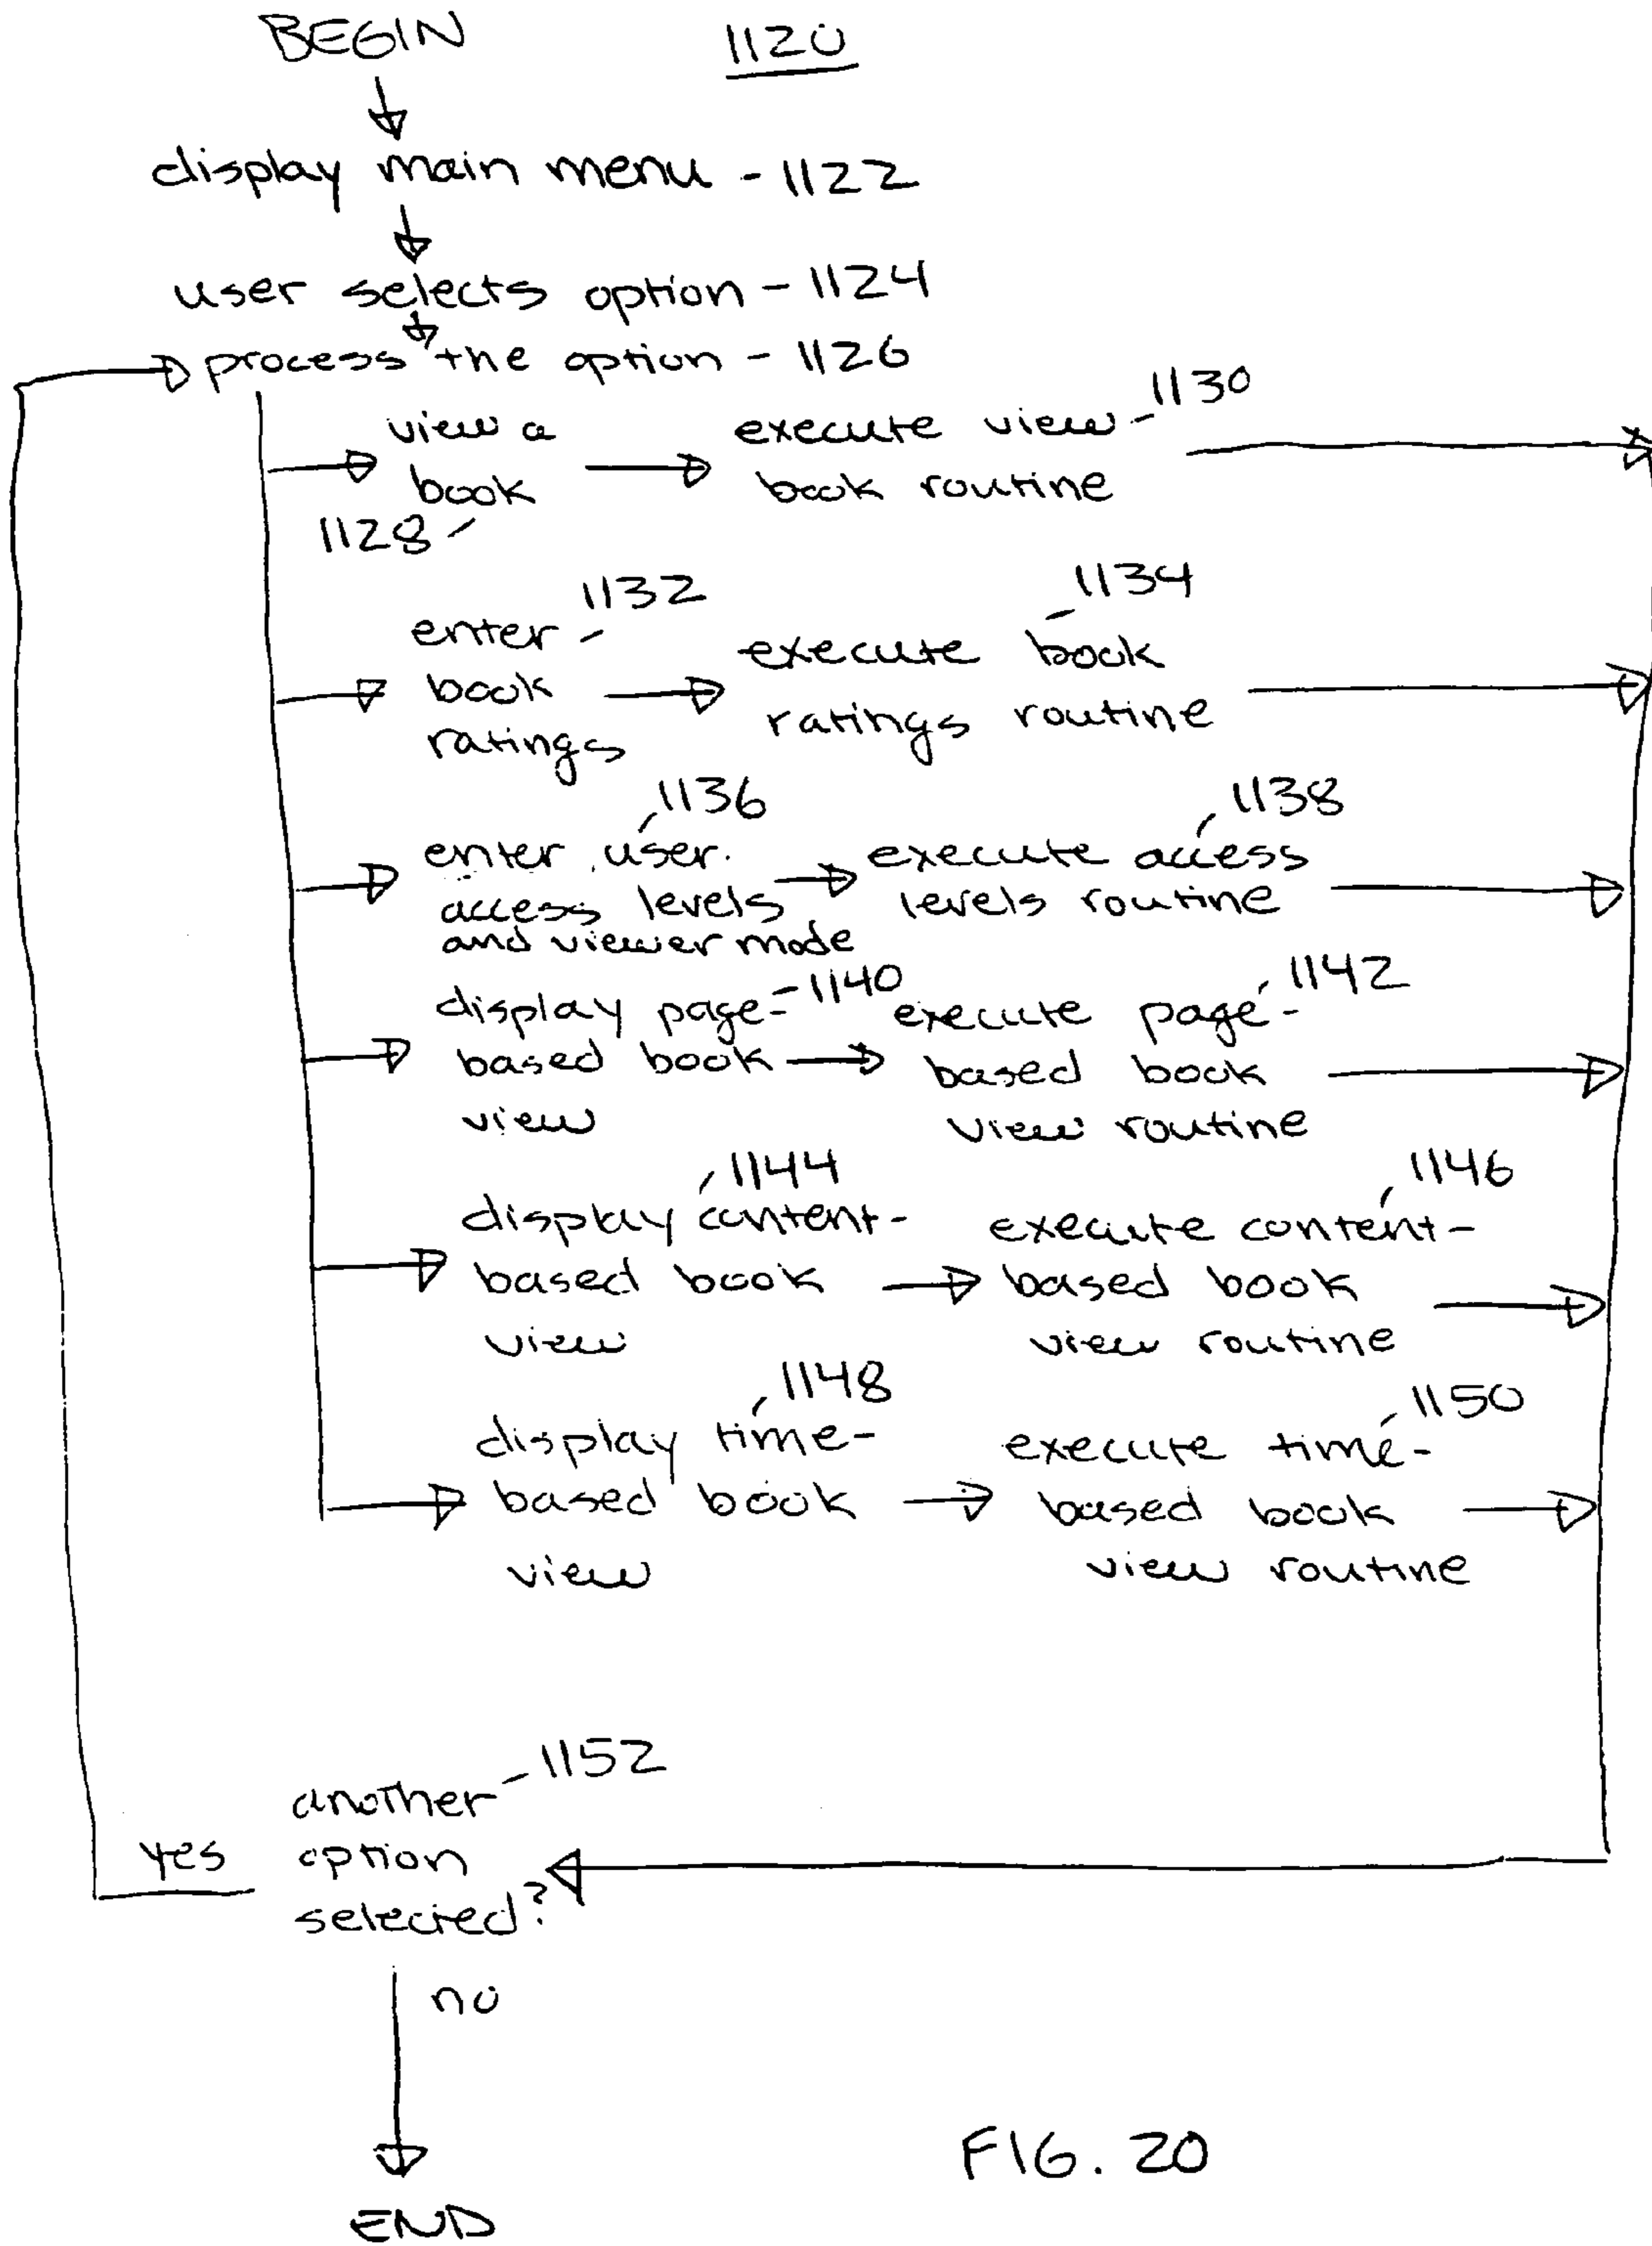 BEGIN 1120
display main menu - 1122
user selects option - 1124
process the option - 1126
view a
book
1128
execute view - 1130
book routine
enter - 1132
book
ratings
1134
execute book
ratings routine
1136
enter user
access levels
and viewer mode
1138
execute access
levels routine
display page- 1140
based book
view
1142
execute page-
based book
view routine
1144
display content-
based book
view
1146
execute content-
based book
view routine
1148
display time-
based book
view
1150
execute time-
based book
view routine
another - 1152
option
selected?
yes
no
END
FIG. 20